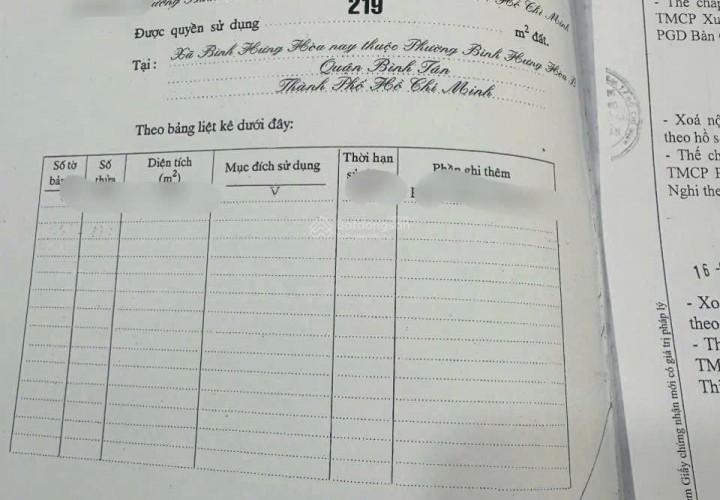 Hồ Chí Minh
219
Được quyền sử dụng m² đất.
Tại : Xã Bình Hưng Hòa nay thuộc Phường Bình Hưng Hòa
Quận Bình Tân
Thành Phố Hồ Chí Minh
Theo bảng liệt kê dưới đây:
Số tờ
Số thửa
Diện tích
(m²)
Mục đích sử dụng
Thời hạn
Phần ghi thêm
V
Batdongsan
- Thế chấp
TMCP Xu
PGD Bàn
- Xoá nợ
theo hồ s
- Thế ch
TMCP
Nghi the
16 -
- Xo
theo
- Th
TM
Th
Giấy chứng nhận mới có giá trị pháp lý